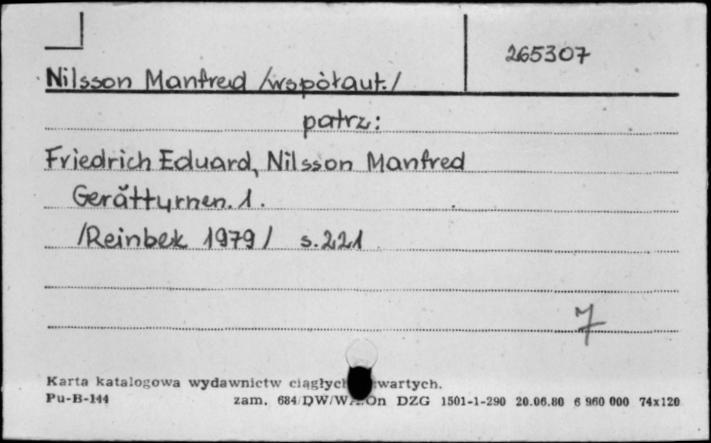 265307
Nilsson Manfred /współaut./
patrz:
Friedrich Eduard, Nilsson Manfred
Gerätturnen. 1.
/Reinbek 1979/ s.221
7
Karta katalogowa wydawnictw
Pu-B-144 zam. 684/DW/W/ZOn DZG 1501-1-290 20.06.80 6 960 000 74x120